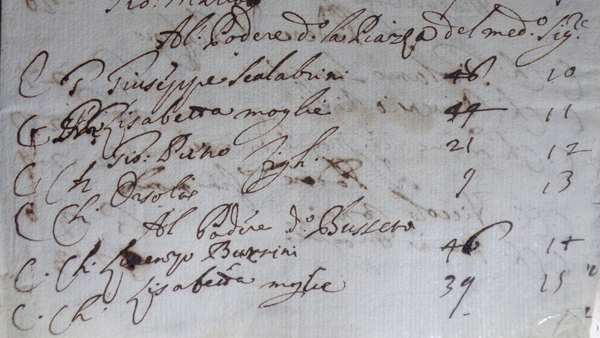 Al Podere d.o la Piazza del med.o Sig.e
C P Giuseppe Scalabrini 46 10
C Ch Lisabetta moglie 44 11
C Gio: Pietro figli. 21 12
C Ch Orsola 9 13
Al Podere d.o Bussero
C. Ch. Lorenzo Bursini 46 14
C. Ch. Lisabetta moglie 39 15